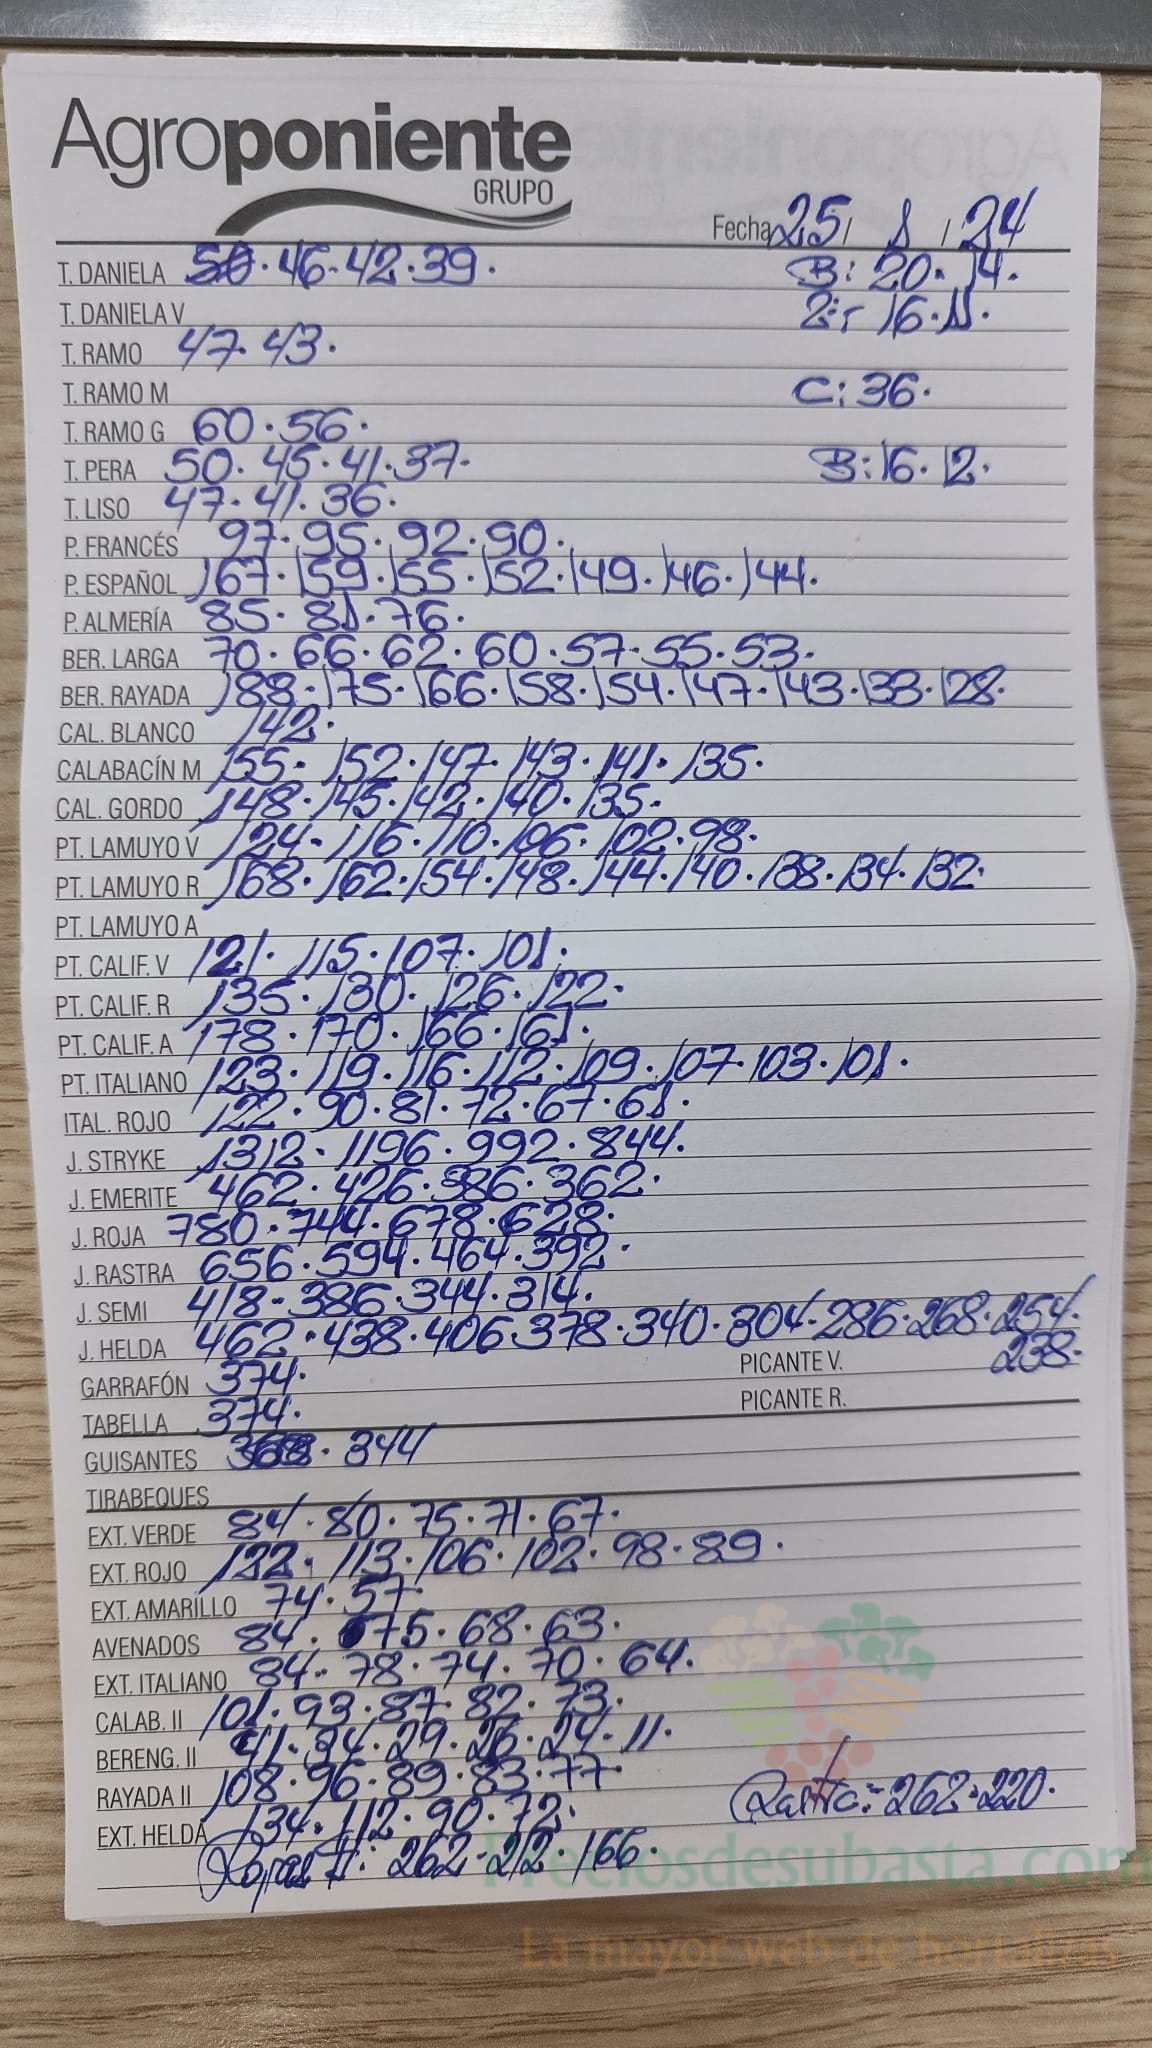 Agroponiente
GRUPO
Fecha 25 / 1 / 24
T. DANIELA 50. 46. 42. 39. B: 20. 14.
T. DANIELA V 2: 16. 11.
T. RAMO 47. 43.
T. RAMO M C: 36.
T. RAMO G 60. 56.
T. PERA 50. 45. 41. 37. B: 16. 12.
T. LISO 47. 41. 36.
P. FRANCÉS 97. 95. 92. 90.
P. ESPAÑOL 167. 159. 155. 152. 149. 146. 144.
P. ALMERÍA 85. 81. 76.
BER. LARGA 70. 66. 62. 60. 57. 55. 53.
BER. RAYADA 188. 175. 166. 158. 154. 147. 143. 133. 128.
CAL. BLANCO 142.
CALABACÍN M 155. 152. 147. 143. 141. 135.
CAL. GORDO 148. 145. 142. 140. 135.
PT. LAMUYO V 124. 116. 110. 106. 102. 98.
PT. LAMUYO R 168. 162. 154. 148. 144. 140. 138. 134. 132.
PT. LAMUYO A
PT. CALIF. V 121. 115. 107. 101.
PT. CALIF. R 135. 130. 126. 122.
PT. CALIF. A 178. 170. 166. 161.
PT. ITALIANO 123. 119. 116. 112. 109. 107. 103. 101.
ITAL. ROJO 122. 90. 81. 72. 67. 61.
J. STRYKE 1312. 1196. 992. 844.
J. EMERITE 462. 426. 386. 362.
J. ROJA 780. 744. 678. 628.
J. RASTRA 656. 594. 464. 392.
J. SEMI 418. 386. 344. 314.
J. HELDA 462. 438. 406. 378. 340. 304. 286. 268. 254.
238.
GARRAFÓN 374. PICANTE V.
TABELLA 374. PICANTE R.
GUISANTES 368. 344
TIRABEQUES
EXT. VERDE 84. 80. 75. 71. 67.
EXT. ROJO 122. 113. 106. 102. 98. 89.
EXT. AMARILLO 74. 57.
AVENADOS 84. 75. 68. 63.
EXT. ITALIANO 84. 78. 74. 70. 64.
CALAB. II 101. 93. 87. 82. 73.
BERENG. II 41. 34. 29. 26. 24. 11.
RAYADA II 108. 96. 89. 83. 77.
EXT. HELDA 134. 112. 90. 72. Rastra: 262. 220.
Rojas II: 262. 212. 166.
Preciosdesubasta.com
La mayor web de hortalizas